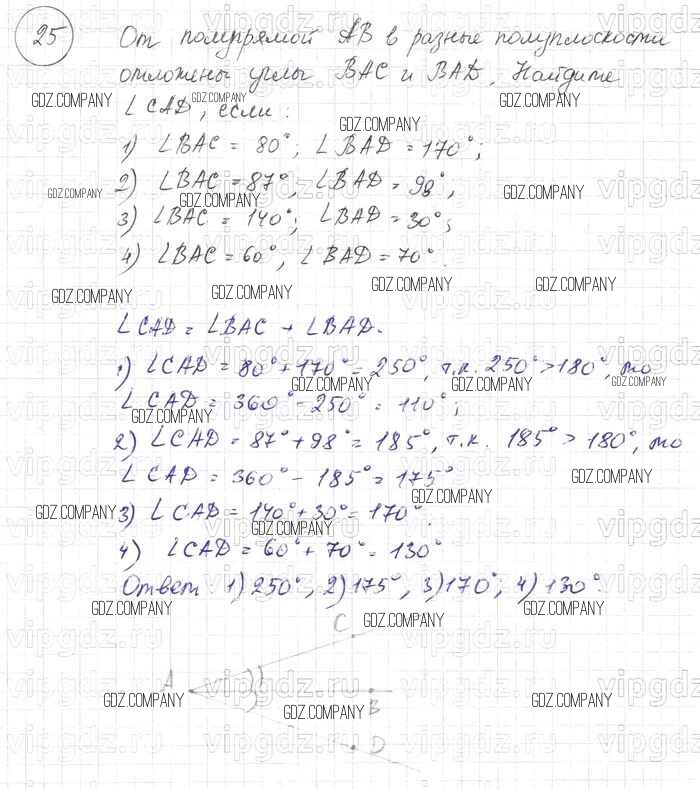 25
От полупрямой AB в разные полуплоскости
отложены углы BAC и BAD. Найдите
∠CAD, если:
1) ∠BAC = 80°; ∠BAD = 170°;
2) ∠BAC = 87°, ∠BAD = 98°,
3) ∠BAC = 140°; ∠BAD = 30°;
4) ∠BAC = 60°, ∠BAD = 70°.
∠CAD = ∠BAC + ∠BAD.
1) ∠CAD = 80° + 170° = 250°, т.к. 250° > 180°, то
∠CAD = 360° - 250° = 110°;
2) ∠CAD = 87° + 98° = 185°, т.к. 185° > 180°, то
∠CAD = 360° - 185° = 175°
3) ∠CAD = 140° + 30° = 170°.
4) ∠CAD = 60° + 70° = 130°
Ответ: 1) 250°, 2) 175°, 3) 170°; 4) 130°.
C
A
B
D
GDZ.COMPANY
vipgdz.ru